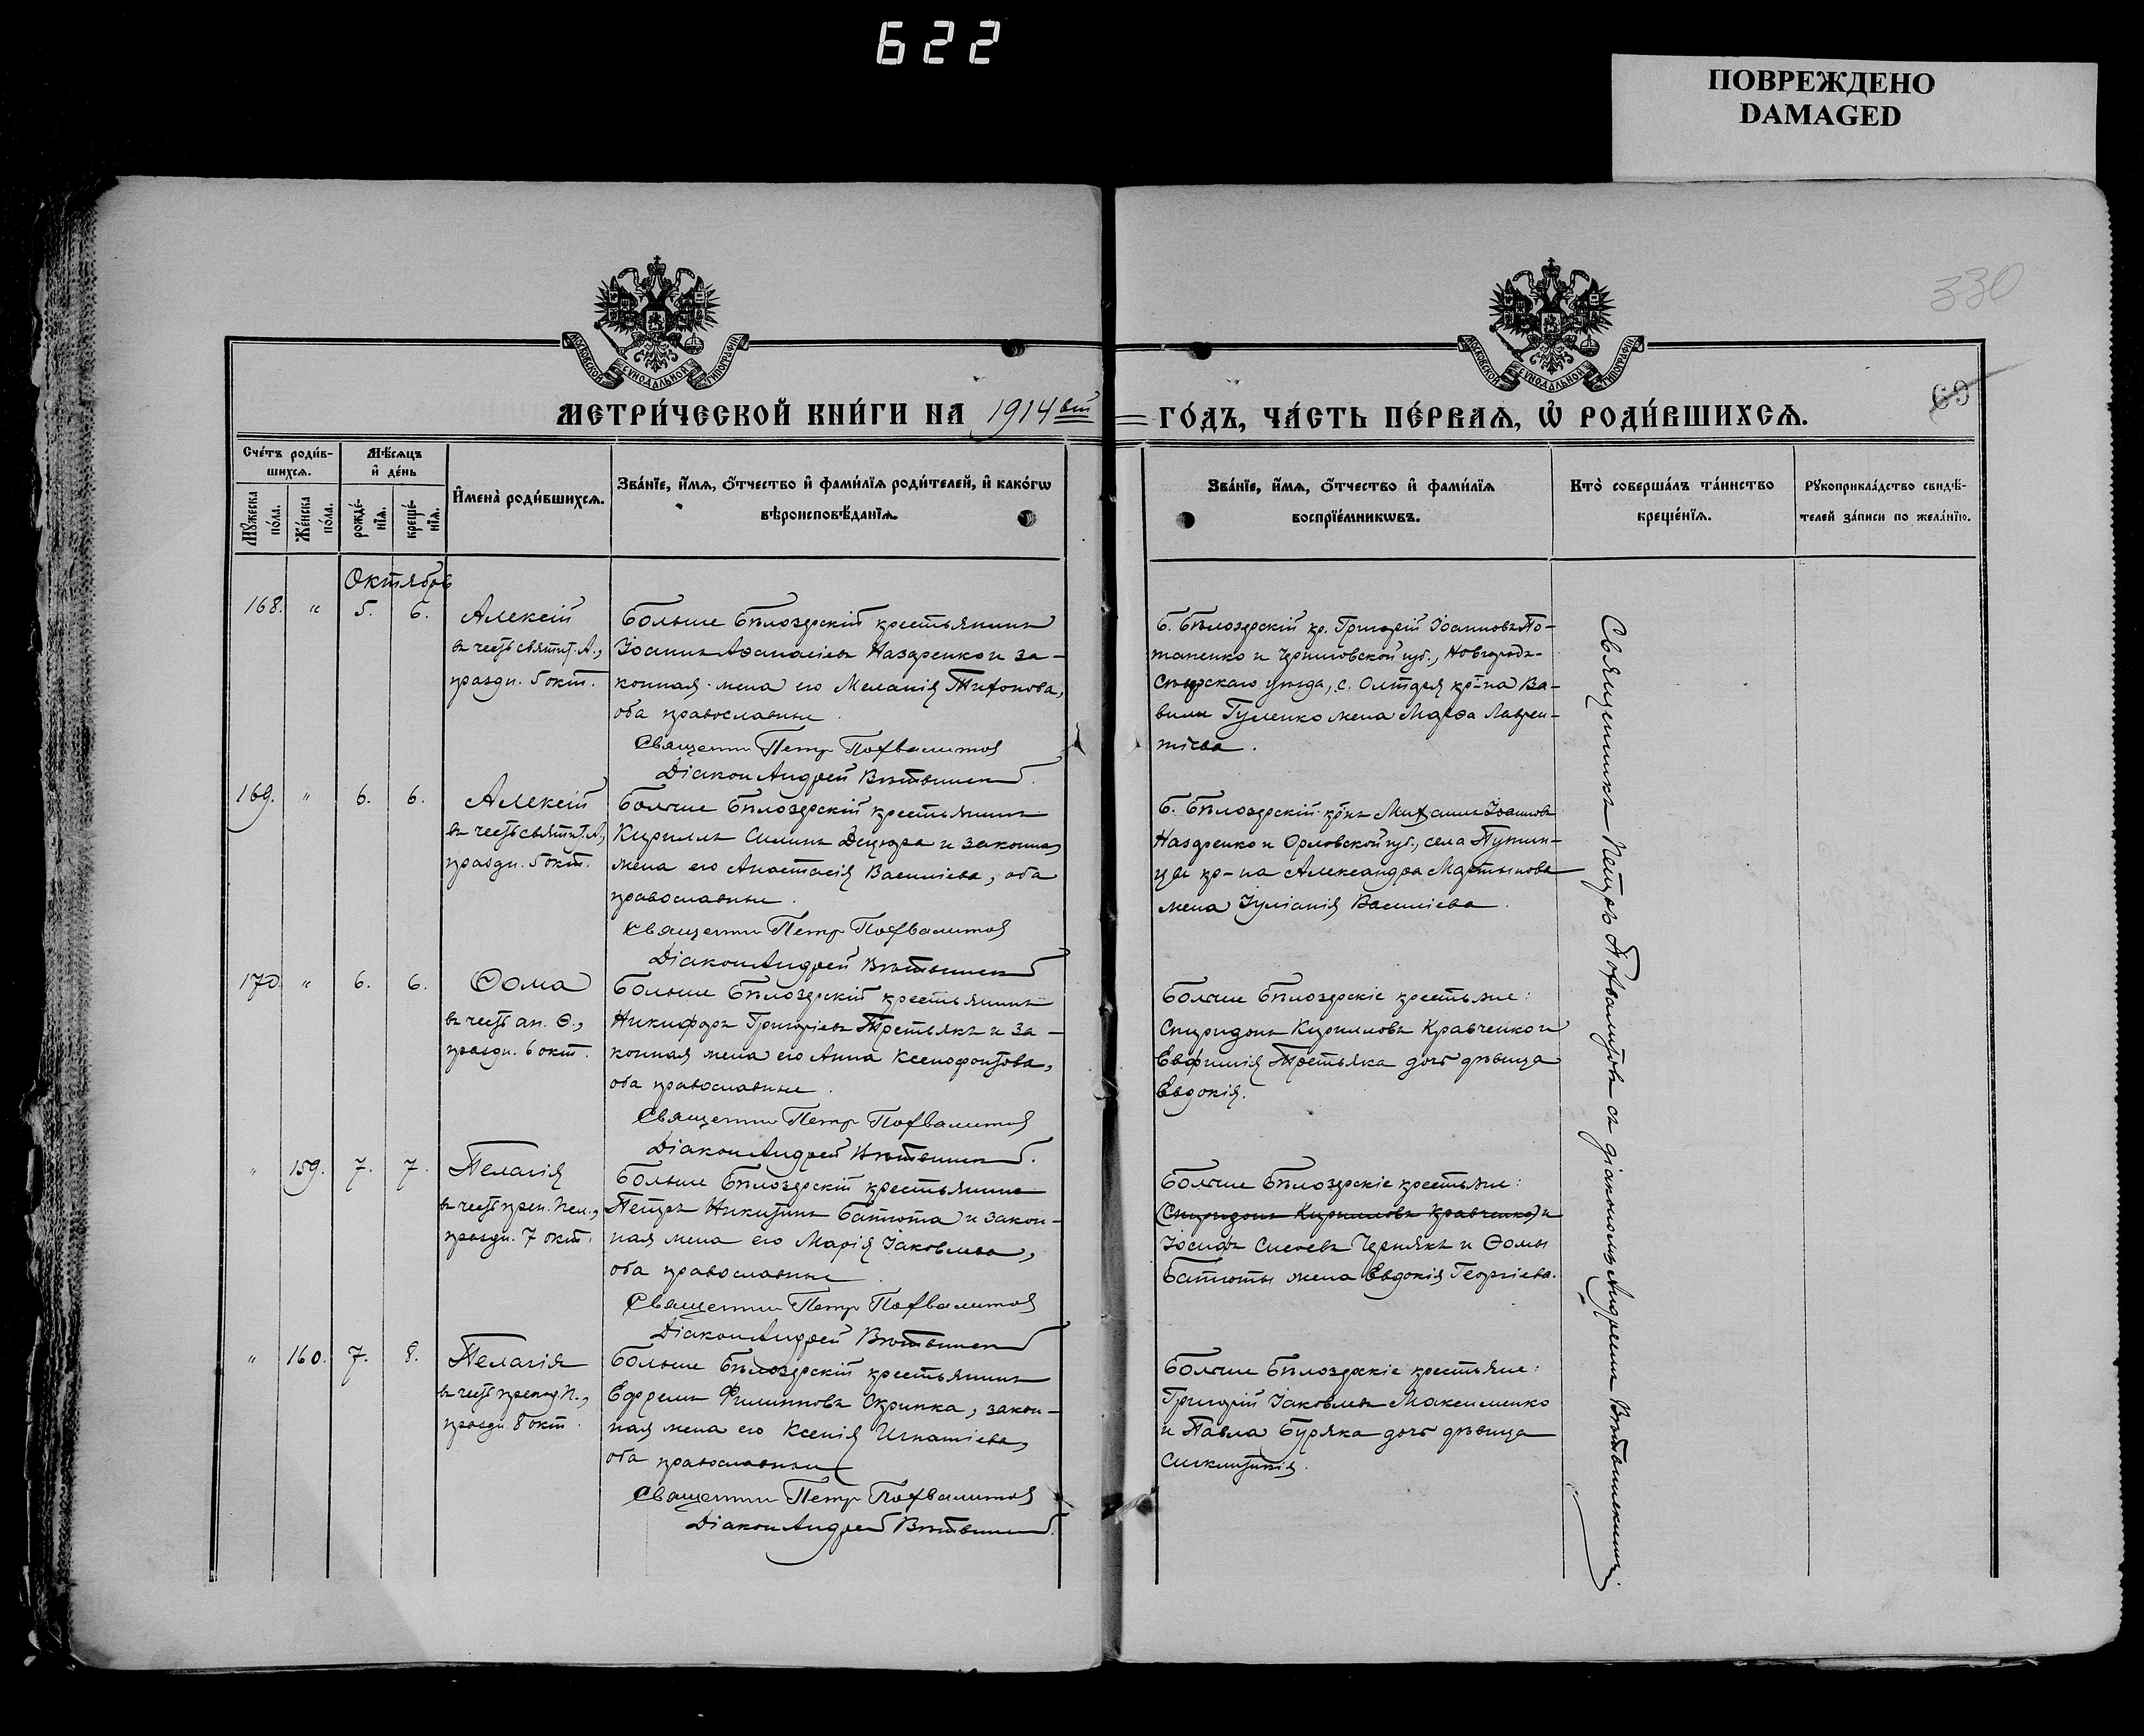 622
ПОВРЕЖДЕНО
DAMAGED
330
69
МОСКОВСКОЙ СѴНОДАЛЬНОЙ ТИПОГРАФІИ
МОСКОВСКОЙ СѴНОДАЛЬНОЙ ТИПОГРАФІИ
МЕТРИ́ЧЕСКОЙ КНИ́ГИ НА 1914 ый
ГО́ДЪ, ЧА́СТЬ ПЕ́РВАѦ, Ѡ РОДИ́ВШИХСѦ.
Сче́тъ роди́в-
шихсѧ.
Мꙋ́жеска по́ла.
Же́нска по́ла.
Мѣ́сѧцъ
и҆ де́нь
рожде́-
нїѧ.
креще́-
нїѧ.
И҆мена̀ роди́вшихсѧ.
Зва́нїе, и҆́мѧ, ѻ҆́тчество и҆ фами́лїѧ роди́телей, и҆ како́гѡ
вѣроисповѣ́данїѧ.
Зва́нїе, и҆́мѧ, ѻ҆́тчество и҆ фами́лїѧ
воспрїе́мникѡвъ.
Кто̀ соверша́лъ та́инство
креще́нїѧ.
Рꙋкоприкла́дство свидѣ́-
телей за́писи по жела́нїю.
Октябрь
168. " 5. 6. Алексій
въ честь святит. А.,
праздн. 5 окт.
Больше Бѣлозерскій крестьянинъ
Іоаннъ Аѳанасіевъ Назаренко и за-
конная жена его Меланія Тихонова,
оба православные.
Священник Петр Похвалитов
Діакон Андрей Вѣтвинскій.
Б. Бѣлозерскій кр. Григорій Іоанновъ По-
тапенко и Черниговской губ., Новгородъ-
Сѣверскаго уѣзда, с. кр-на Ва-
вилы Гуленко жена Марѳа Лаврен-
тіева.
169. " 6. 6. Алексій
въ честь святит. А.,
праздн. 5 окт.
Больше Бѣлозерскій крестьянинъ
Кириллъ Силинъ Децюра и законная
жена его Анастасія Василіева, оба
православные.
Священник Петр Похвалитов
Діакон Андрей Вѣтвинскій
Б. Бѣлозерскій кр-нъ Михаилъ Іоанновъ
Назаренко и Орловской губ., села
кр-на Александра Мартынова
жена Іуліанія Василіева.
170. " 6. 6. Ѳома
въ честь ап. Ѳ.,
праздн. 6 окт.
Больше Бѣлозерскій крестьянинъ
Никифоръ Григоріевъ Третьякъ и за-
конная жена его Анна Ксенофонтова,
оба православные.
Священник Петр Похвалитов
Діакон Андрей Вѣтвинскій.
Больше Бѣлозерскіе крестьяне:
Спиридонъ Кирилловъ Кравченко и
Евфимія Третьяка дочь дѣвица
Евдокія.
" 159. 7. 7. Пелагія
въ честь преп. Пел.,
праздн. 7 окт.
Больше Бѣлозерскій крестьянинъ
Петръ Никитинъ Батюта и закон-
ная жена его Марія Іаковлева,
оба православные.
Священник Петр Похвалитов
Діакон Андрей Вѣтвинскій
Больше Бѣлозерскіе крестьяне:
(Спиридонъ Кирилловъ Кравченко) и
Іосифъ Черныкъ и Ѳомы
Батюты жена Евдокія Георгіева.
" 160. 7. 8. Пелагія
въ честь препод. П.,
праздн. 8 окт.
Больше Бѣлозерскій крестьянинъ
Ефремъ Филипповъ Скрипка, закон-
ная жена его Ксенія Игнатіева,
оба православные
Священник Петр Похвалитов
Діакон Андрей Вѣтвинскій.
Больше Бѣлозерскіе крестьяне:
Григорій Іаковлевъ Максименко
и Павла Буряка дочь дѣвица
Синклитикія.
Священникъ Петръ Похвалитовъ съ діакономъ Андреемъ Вѣтвинскимъ